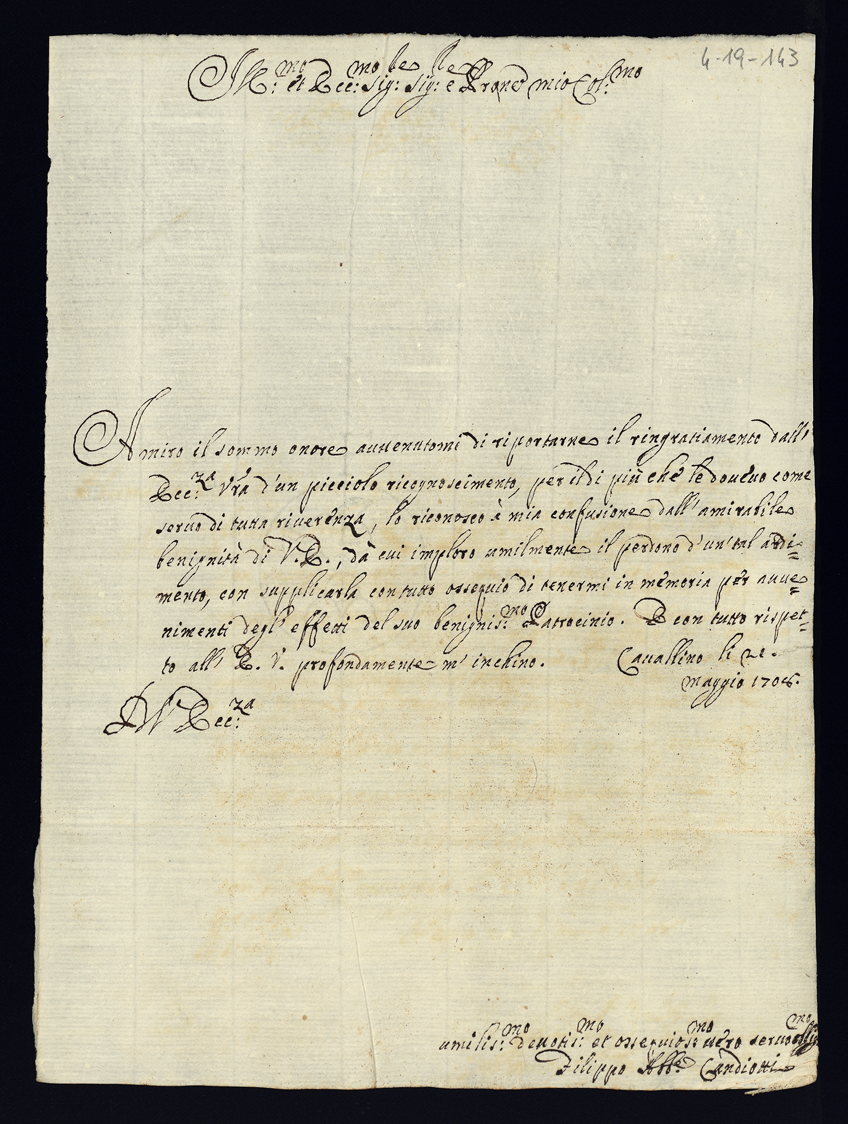 4-19-143
Ill:mo et Ecc:mo Sig:re Sig:re e Prone mio Col:mo
Amiro il sommo onore auuenutomi di riportarne il ringratiamento dall'
Ecc:za Vrã d'un picciolo ricognoscimento, per il di più che le doueuo come
seruo di tutta riuerenza, lo riconosco è mia confusione dall'amirabile
benignità di V.E., dà cui imploro umilmente il perdono d'un tal ardi=
mento, con supplicarla con tutto ossequio di tenermi in memoria per auue=
nimenti degl'effetti del suo benignis:mo Patrocinio. E con tutto rispet=
to all'E. V. profondamente m'inchino. Cauallino li 21.
maggio 1706.
D V Ecc:za
umilis:mo deuotis:mo et ossequios:mo uero seruo oblig:mo
Filippo Abb:e Candiotti